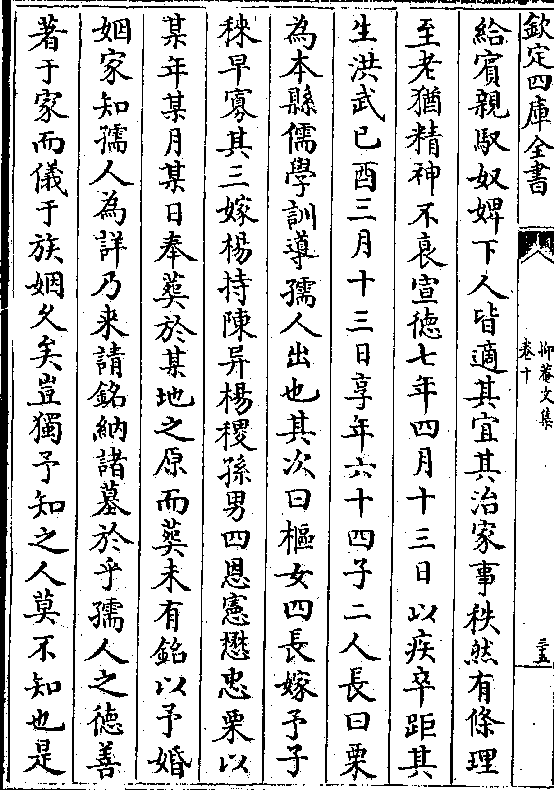 欽定四庫全書
抑菴文集
卷十
三五
給賓親馭奴婢下人皆適其宜其治家事秩然有條理
至老猶精神不衰宣徳七年四月十三日以疾卒距其
生洪武己酉三月十三日享年六十四子二人長曰栗
為本縣儒學訓導孺人出也其次曰樞女四長嫁予子
秣早寡其三嫁楊持陳异楊稷孫男四恩憲懋忠栗以
某年某月某日奉葬於某地之原而葬未有銘以予婚
姻家知孺人為詳乃来請銘納諸墓於乎孺人之徳善
著于家而儀于族姻久矣豈獨予知之人莫不知也是